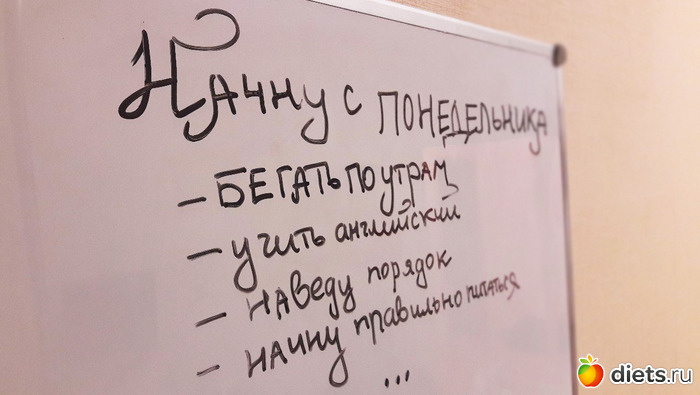 Начну с понедельника
- БЕГАТЬ ПО УТРАМ
- учить английский
- наведу порядок
- начну правильно питаться
...
diets.ru